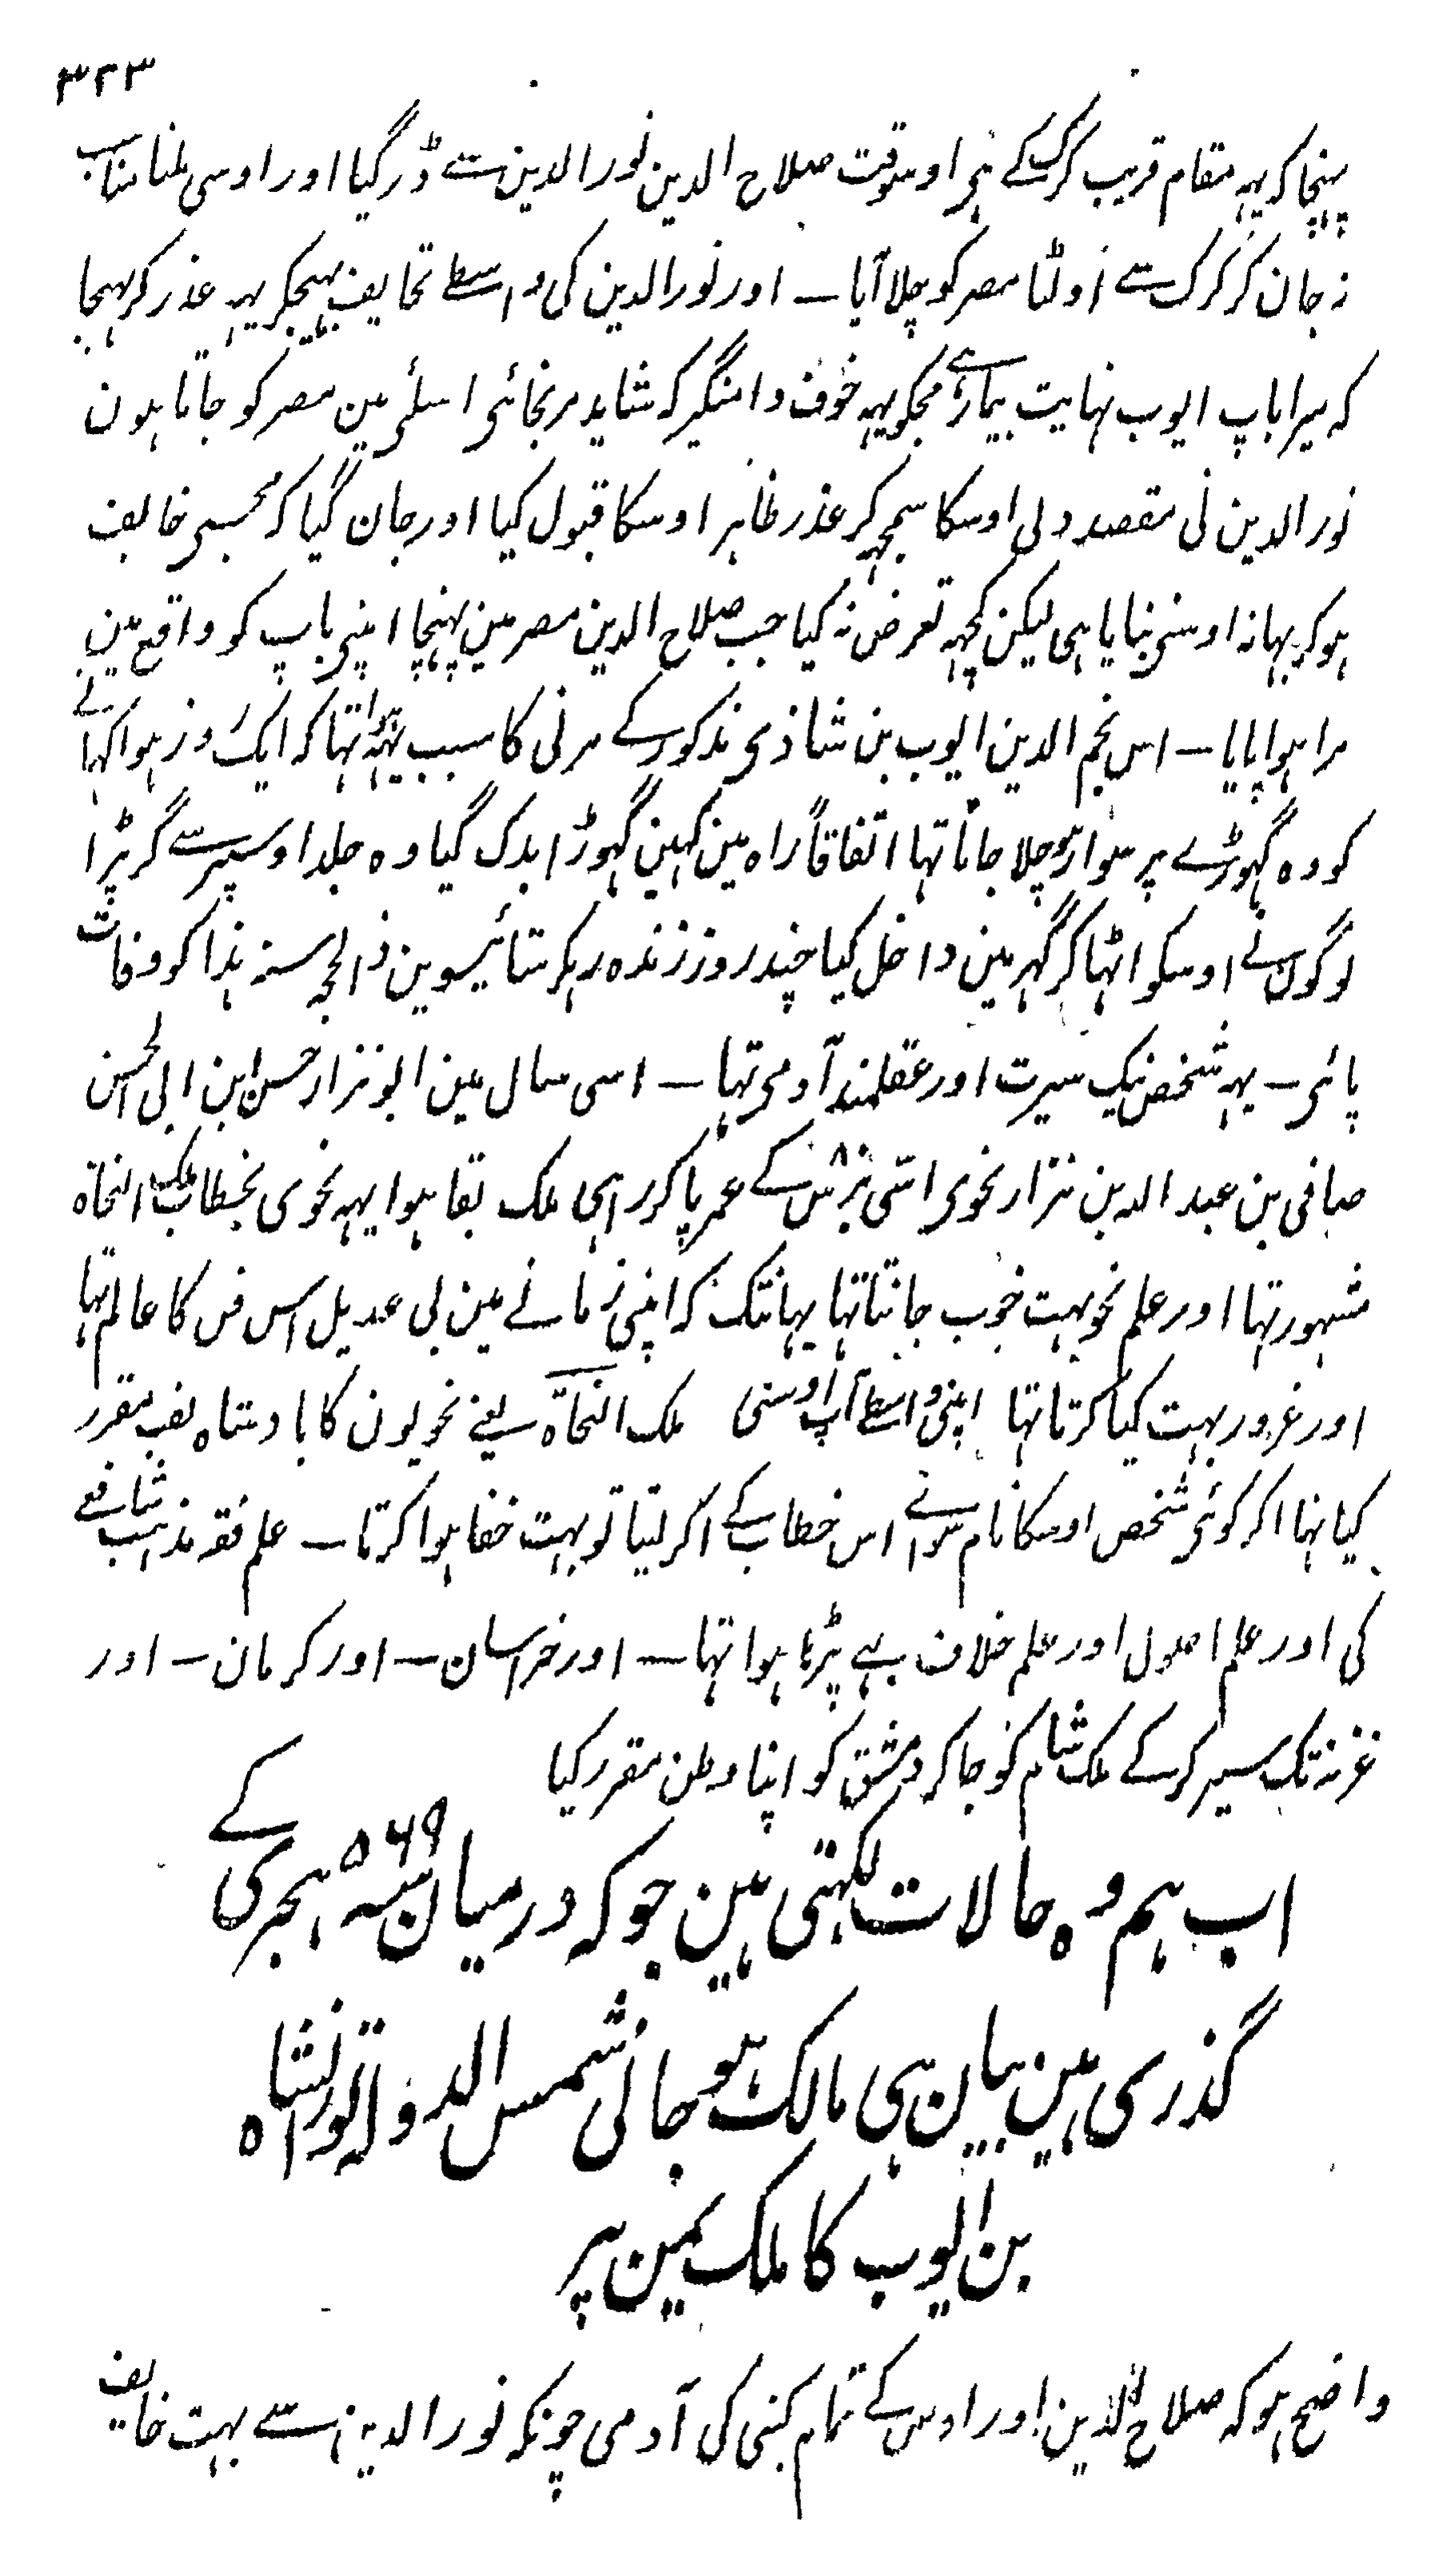 ۳۲۳
پہنچا کہ یہہ مقام قریب کرک کے ہی اوسوقت صلاح الدین نور الدین سے ڈر گیا اور اوسی ملنا مناسب
نہ جان کر کرک سے اولٹا مصر کو چلا آیا ــ اور نور الدین کی واسطے تحایف بہیجکر یہہ عذر کر بہیجا
کہ میرا باپ ایوب نہایت بیمار ہے مجکو یہہ خوف دامنگیر کہ شاید مر نجائی اسلئی مین مصر کو جاتا ہون
نور الدین نی مقصد دلی اوسکا سمجہہ کر عذر ظاہر اوسکا قبول کیا اور جان گیا کہ مجسی خایف
ہوکر بہانہ اوسنی بنایا ہی لیکن کچہہ تعرض نہ کیا جب صلاح الدین مصر مین پہنچا اپنی باپ کو واقع مین
مرا ہوا پایا ــ اس نجم الدین ایوب بن شاذی مذکور کے مرنی کا سبب یہہ ہوا تہا کہ ایک روز ہوا کہانے
کو وہ گہوڑے پر سوار ہو چلا جاتا تہا اتفاقاً راہ مین کہین گہوڑا بدک گیا وہ جلد اوسپر سے گر پڑا
لوگون نے اوسکو اٹہا کر گہر مین داخل کیا چند روز زندہ رہکر ستائیسوین ذالحجہ سنہ ہذا کو وفات
پائی ــ یہہ شخص نیک سیرت اور عقلمند آدمی تہا ــ اسی سال مین ابو نزار حسن ابن ابی الحسن
صافی بن عبد اللہ بن نزار نحوی اسّی ۸۰ برس کے عمر پا کر راہی ملک بقا ہوا یہہ نحوی بخطاب ملک النحاۃ
مشہور تہا اور علم نحو بہت خوب جانتا تہا یہانتک کہ اپنی زمانے مین بی عدیل اس فن کا عالم تہا
اور غرور بہت کیا کرتا تہا اپنی واسطے آپ اوسنی ملک النحاۃ یعنے نحویون کا بادشاہ لقب مقرر
کیا تہا اکر کوئی شخص اوسکا نام سوائے اس خطاب کے اکر لیتا تو بہت خفا ہوا کرتا ــ علم فقہ مذہب شافعے
کی اور علم اصول اور علم خلاف بہے پڑہا ہوا تہا ــ اور خراسان ــ اور کرمان ــ اور
غزنہ تک سیر کر کے ملک شام کو جا کر دمشق کو اپنا وطن مقرر کیا
اب ہم وہ حالات لکہتی ہین جو کہ درمیان سنہ ۵۶۹ ہجری کے
گذری ہین بیان ہی مالک ہو جانی شمس الدولہ تورانشاہ
بن ایوب کا ملک یمن پر
واضح ہو کہ صلاح الدین اور اوس کے تمام کنبی کی آدمی چونکہ نور الدین سے بہت خایف